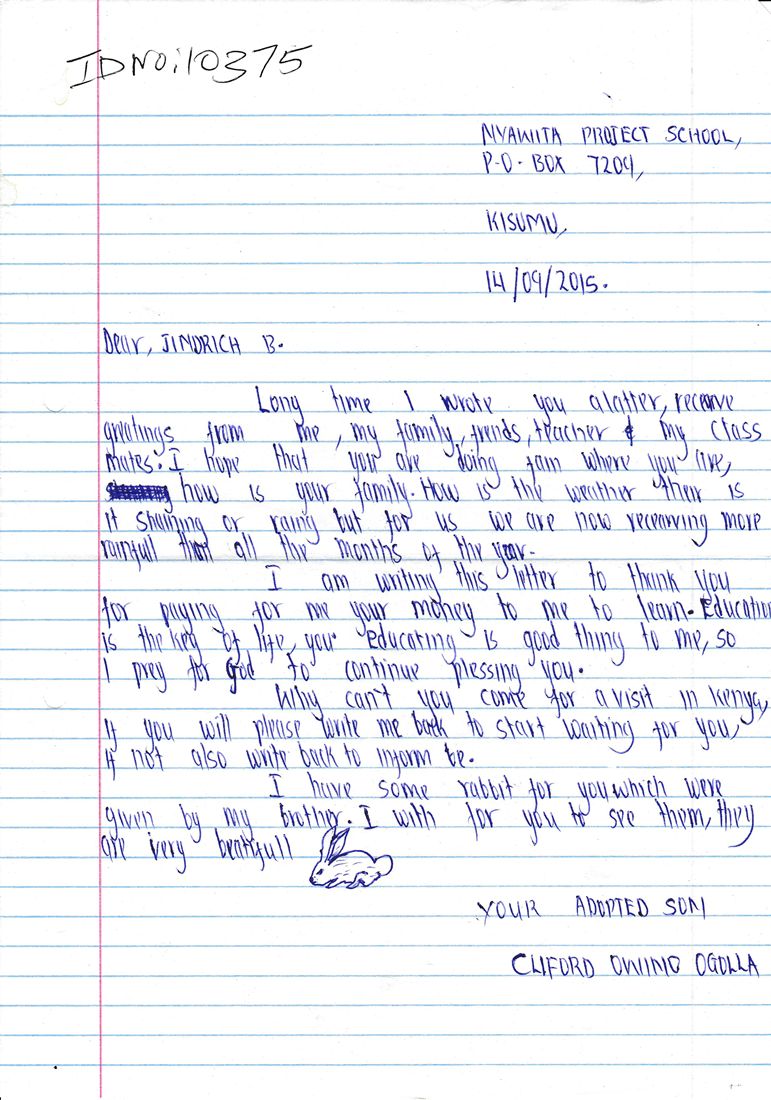 IDNO:10375
NYAWITA PROJECT SCHOOL,
P.O. BOX 7209,
KISUMU,
14/09/2015.
Dear, JINDRICH B.
Long time I wrote you a latter, receive
greatings from me, my family, frends, teacher & my class
mates. I hope that you are doing fain where you are,
how is your family. How is the weather ther is
it shaining or raing but for us we are now recearving more
rainfull than all the months of the year.
I am writing this letter to thank you
for paying for me your money to me to learn. Education
is the key of life, your Educating is good thing to me, so
I prey for God to continue plessing you.
Why can't you come for a visit in kenya,
if you will please write me back to start waiting for you,
if not also write back to inform te.
I have some rabbit for you which were
given by my brother. I with for you to see them, they
are very beatifull
YOUR ADOPTED SON
CLIFORD OWINO OGOLLA